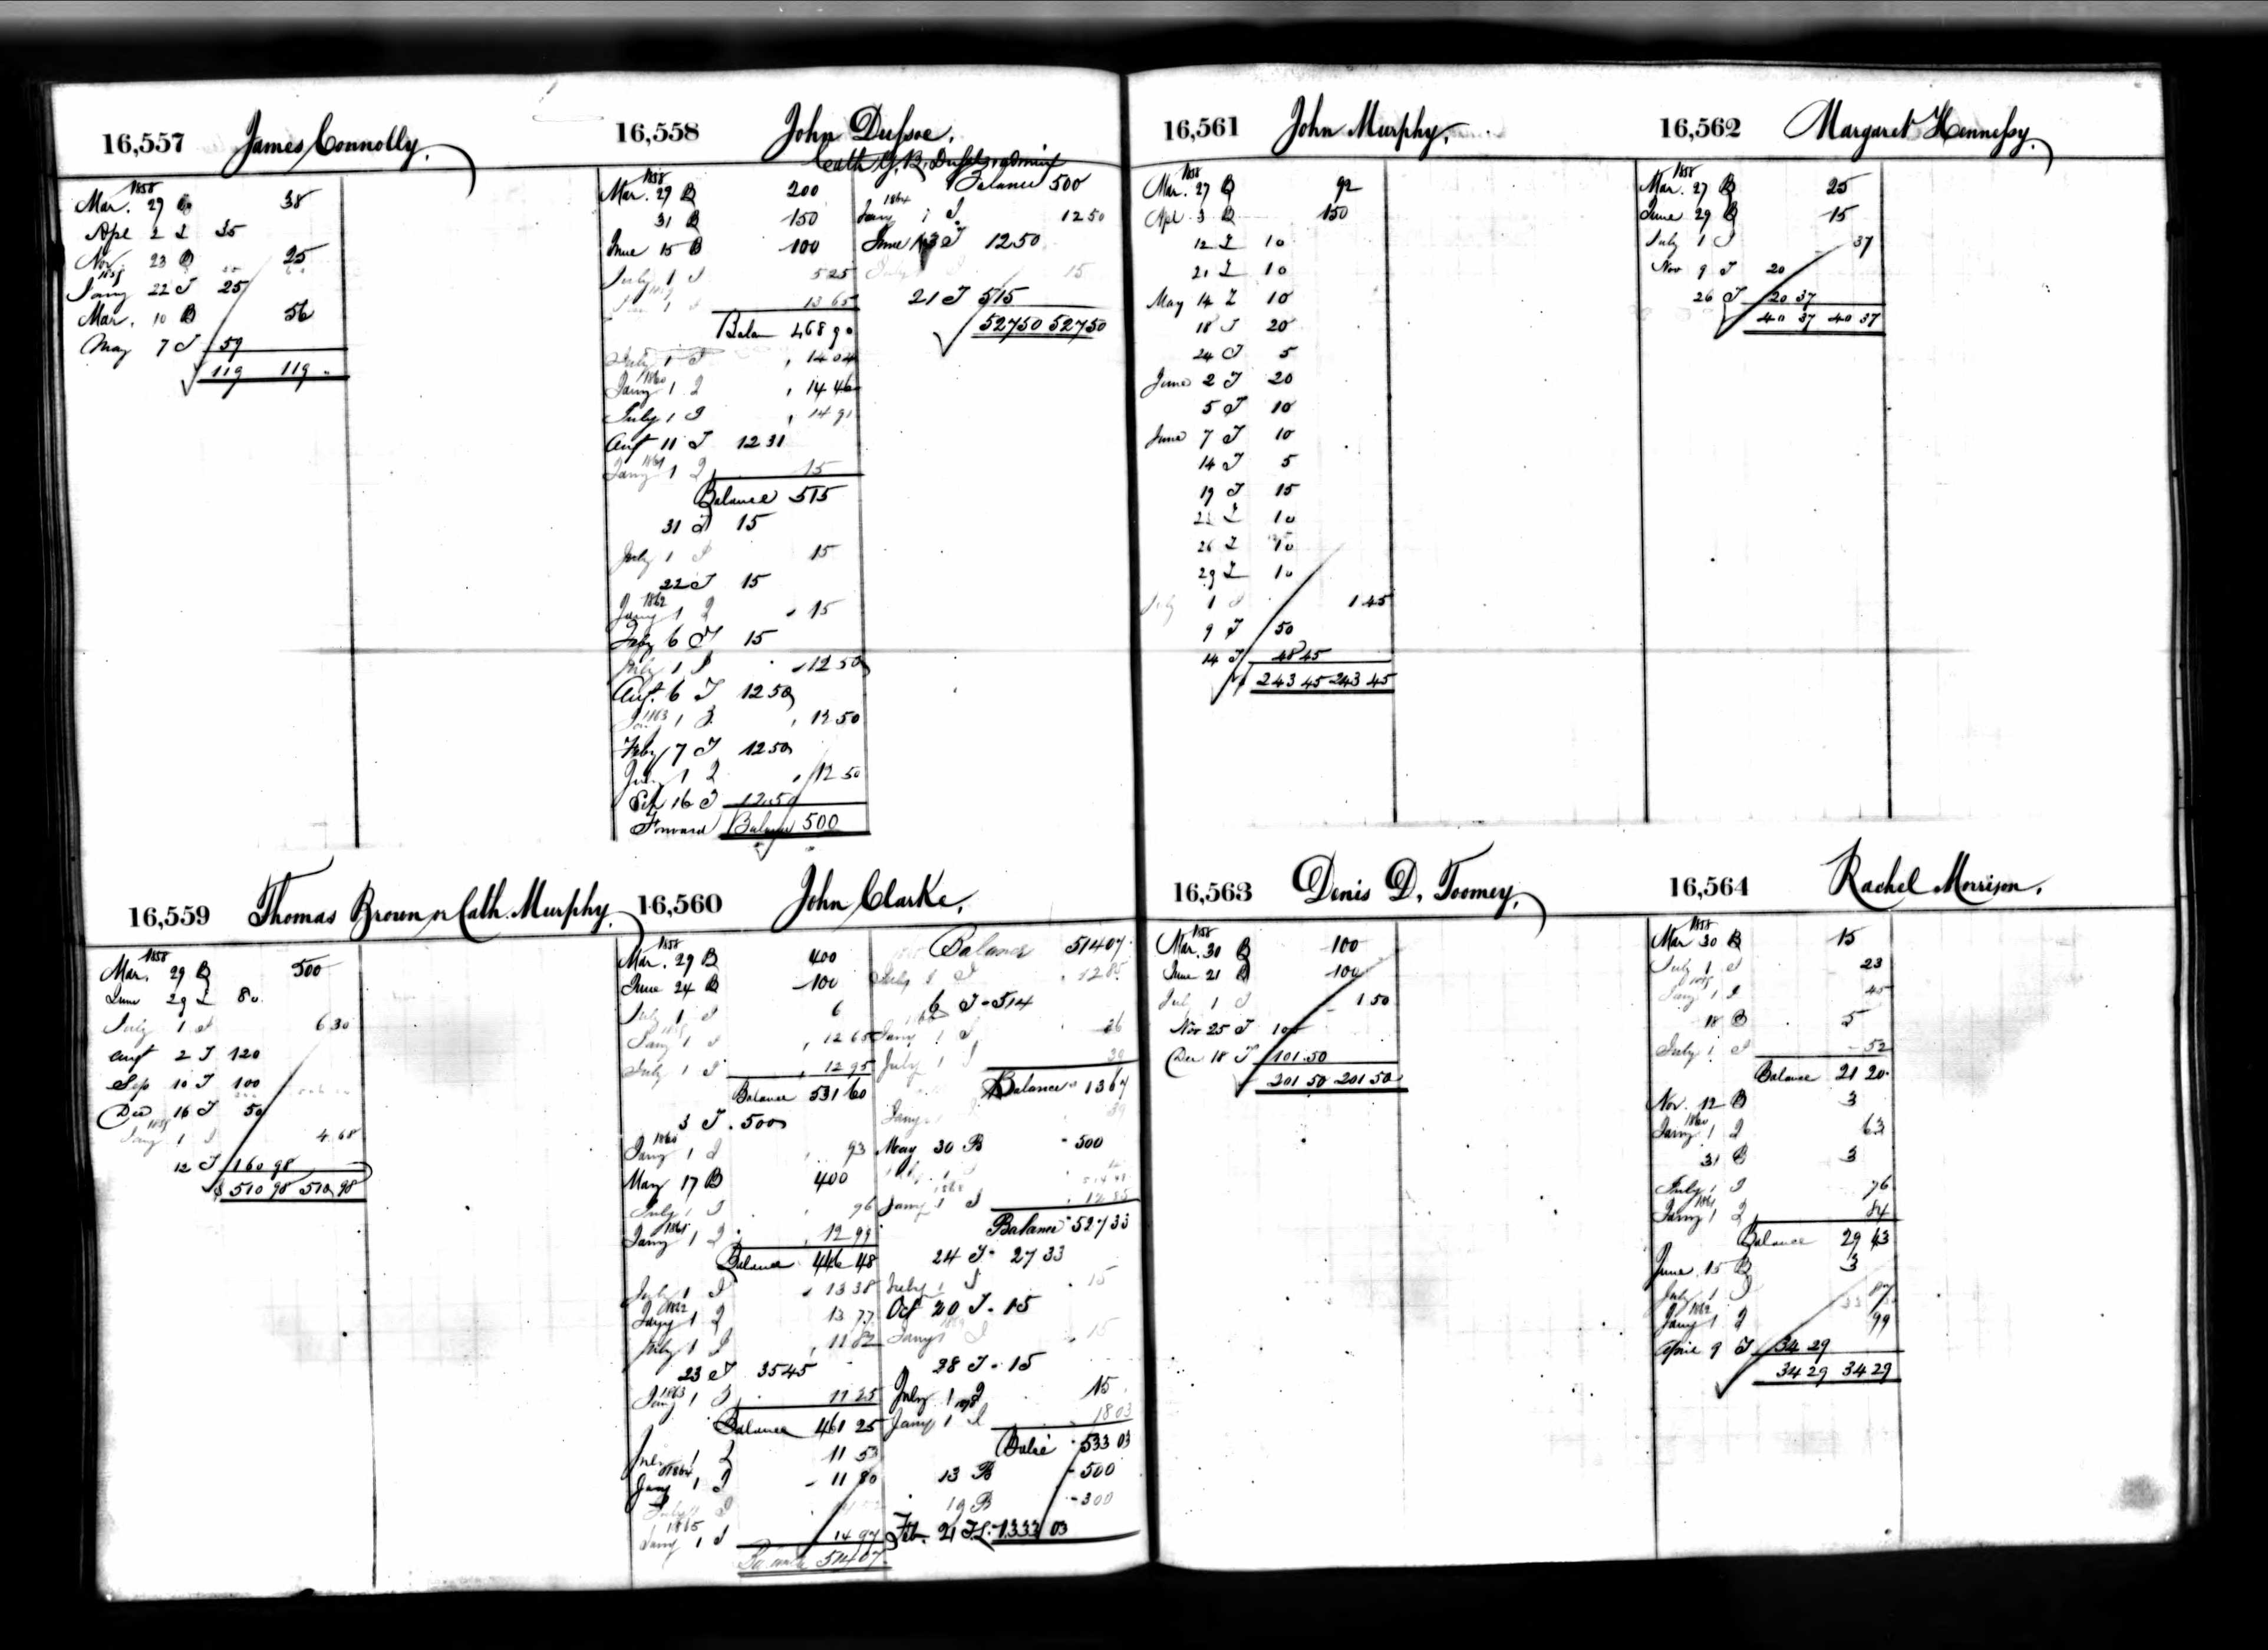 16,557 James Connolly.
1858
Mar. 29 B 38
Apl 2 T 35
Nov. 23 B 25
1859
Jany 22 T 25
Mar. 10 B 56
May 7 T 59
119 119
16,558 John Dufsoe.
1858
Mar. 29 B 200
31 B 150
June 15 B 100
July 1 I 5 25
1859
1 I 13 65
Balan 468 90
July 1 I 14 04
1860
Jany 1 I 14 46
July 1 I 14 91
Augt 11 T 12 31
1861
Jany 1 I 15
Balance 515
31 T 15
July 1 I 15
22 T 15
1862
Jany 1 I 15
Feby 6 T 15
July 1 I 12 50
Augt. 6 T 12 50
1863
1 I 12 50
Feby 7 T 12 50
July 1 I 12 50
Sep 16 T 12.50
Forward Balance 500
Balance 500
1864
Jany 1 I 12 50
June 13 T 12 50
July I 15
21 T 515
527 50 527 50
16,559 Thomas Brown or Cath. Murphy.
1858
Mar. 29 B 500
June 29 T 80
July 1 I 6 30
Augt 2 T 120
Sep 10 T 100
Dec 16 T 50
1859
Jany 1 I 4 68
12 T 160 98
$ 510 98 510 98
16,560 John Clarke.
1858
Mar. 29 B 400
June 24 B 100
July 1 I 6
1859
Jany 1 I 12 65
July 1 I 12 95
Balance 531 60
3 T 500
1860
Jany 1 I 93
May 17 B 400
July 1 I 96
1861
Jany 1 I 12 99
Balance 446 48
July 1 I 13 38
1862
Jany 1 I 13 77
July 1 I 11 82
23 T 35 45
1863
Jany 1 I 11 25
Balance 461 25
July 1 I 11 53
1864
Jany 1 I 11 80
July 1 I
1865
Jany 1 I 14 97
Balance 514 07
Balance 514 07
July 1 I 12 85
6 T 514
Jany 1 I 26
July 1 I 39
Balance 13 67
Jany 39
May 30 B 500
Jany 1 I 12 85
Balance 527 33
24 T 27 33
July 1 I 15
Oct 20 T 15
Jany 1 I 15
28 T 15
July 1 I 15
Jany 1 I 18 03
Balce 533 03
13 B 500
19 B 300
Feb. 21 T 1333 03
16,561 John Murphy.
1858
Mar. 27 B 92
Apl 3 B 150
12 T 10
21 T 10
May 14 T 10
18 T 20
24 T 5
June 2 T 20
5 T 10
June 7 T 10
14 T 5
19 T 15
22 T 10
26 T 10
29 T 10
July 1 I 1 45
9 T 50
14 T 48 45
243 45 243 45
16,562 Margaret Hennefsy.
1858
Mar. 27 B 25
June 29 B 15
July 1 I 37
Nov 9 T 20
26 T 20 37
40 37 40 37
16,563 Denis D. Toomey.
1858
Mar. 30 B 100
June 21 B 100
July 1 I 1 50
Nov 25 T 100
Dec 18 T 101.50
201 50 201 50
16,564 Rachel Morrison.
1858
Mar 30 B 15
July 1 I 23
1859
Jany 1 I 45
18 B 5
July 1 I 52
Balance 21 20
Nov. 12 B 3
1860
Jany 1 I 63
31 B 3
July 1 I 76
1861
Jany 1 I 84
Balance 29 43
June 15 B 3
July 1 I 87
1862
Jany 1 I 99
April 9 T 34 29
34 29 34 29